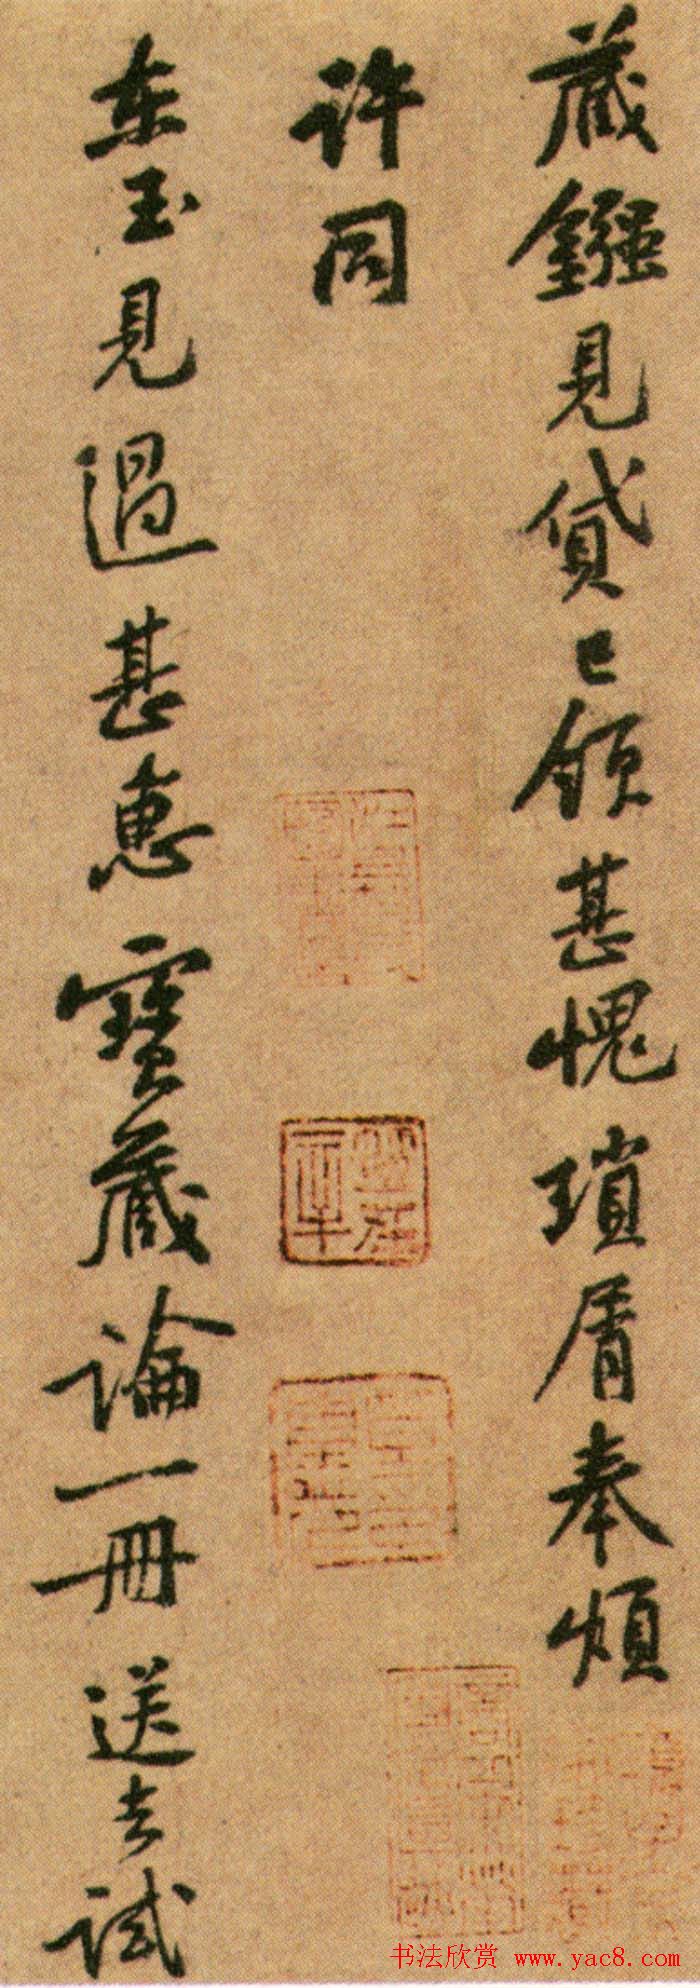 藏鏹見貸已領甚愧瑣屑奉煩
許同
东玉見過甚惠寳藏論一冊送去試
书法欣赏 www.yac8.com